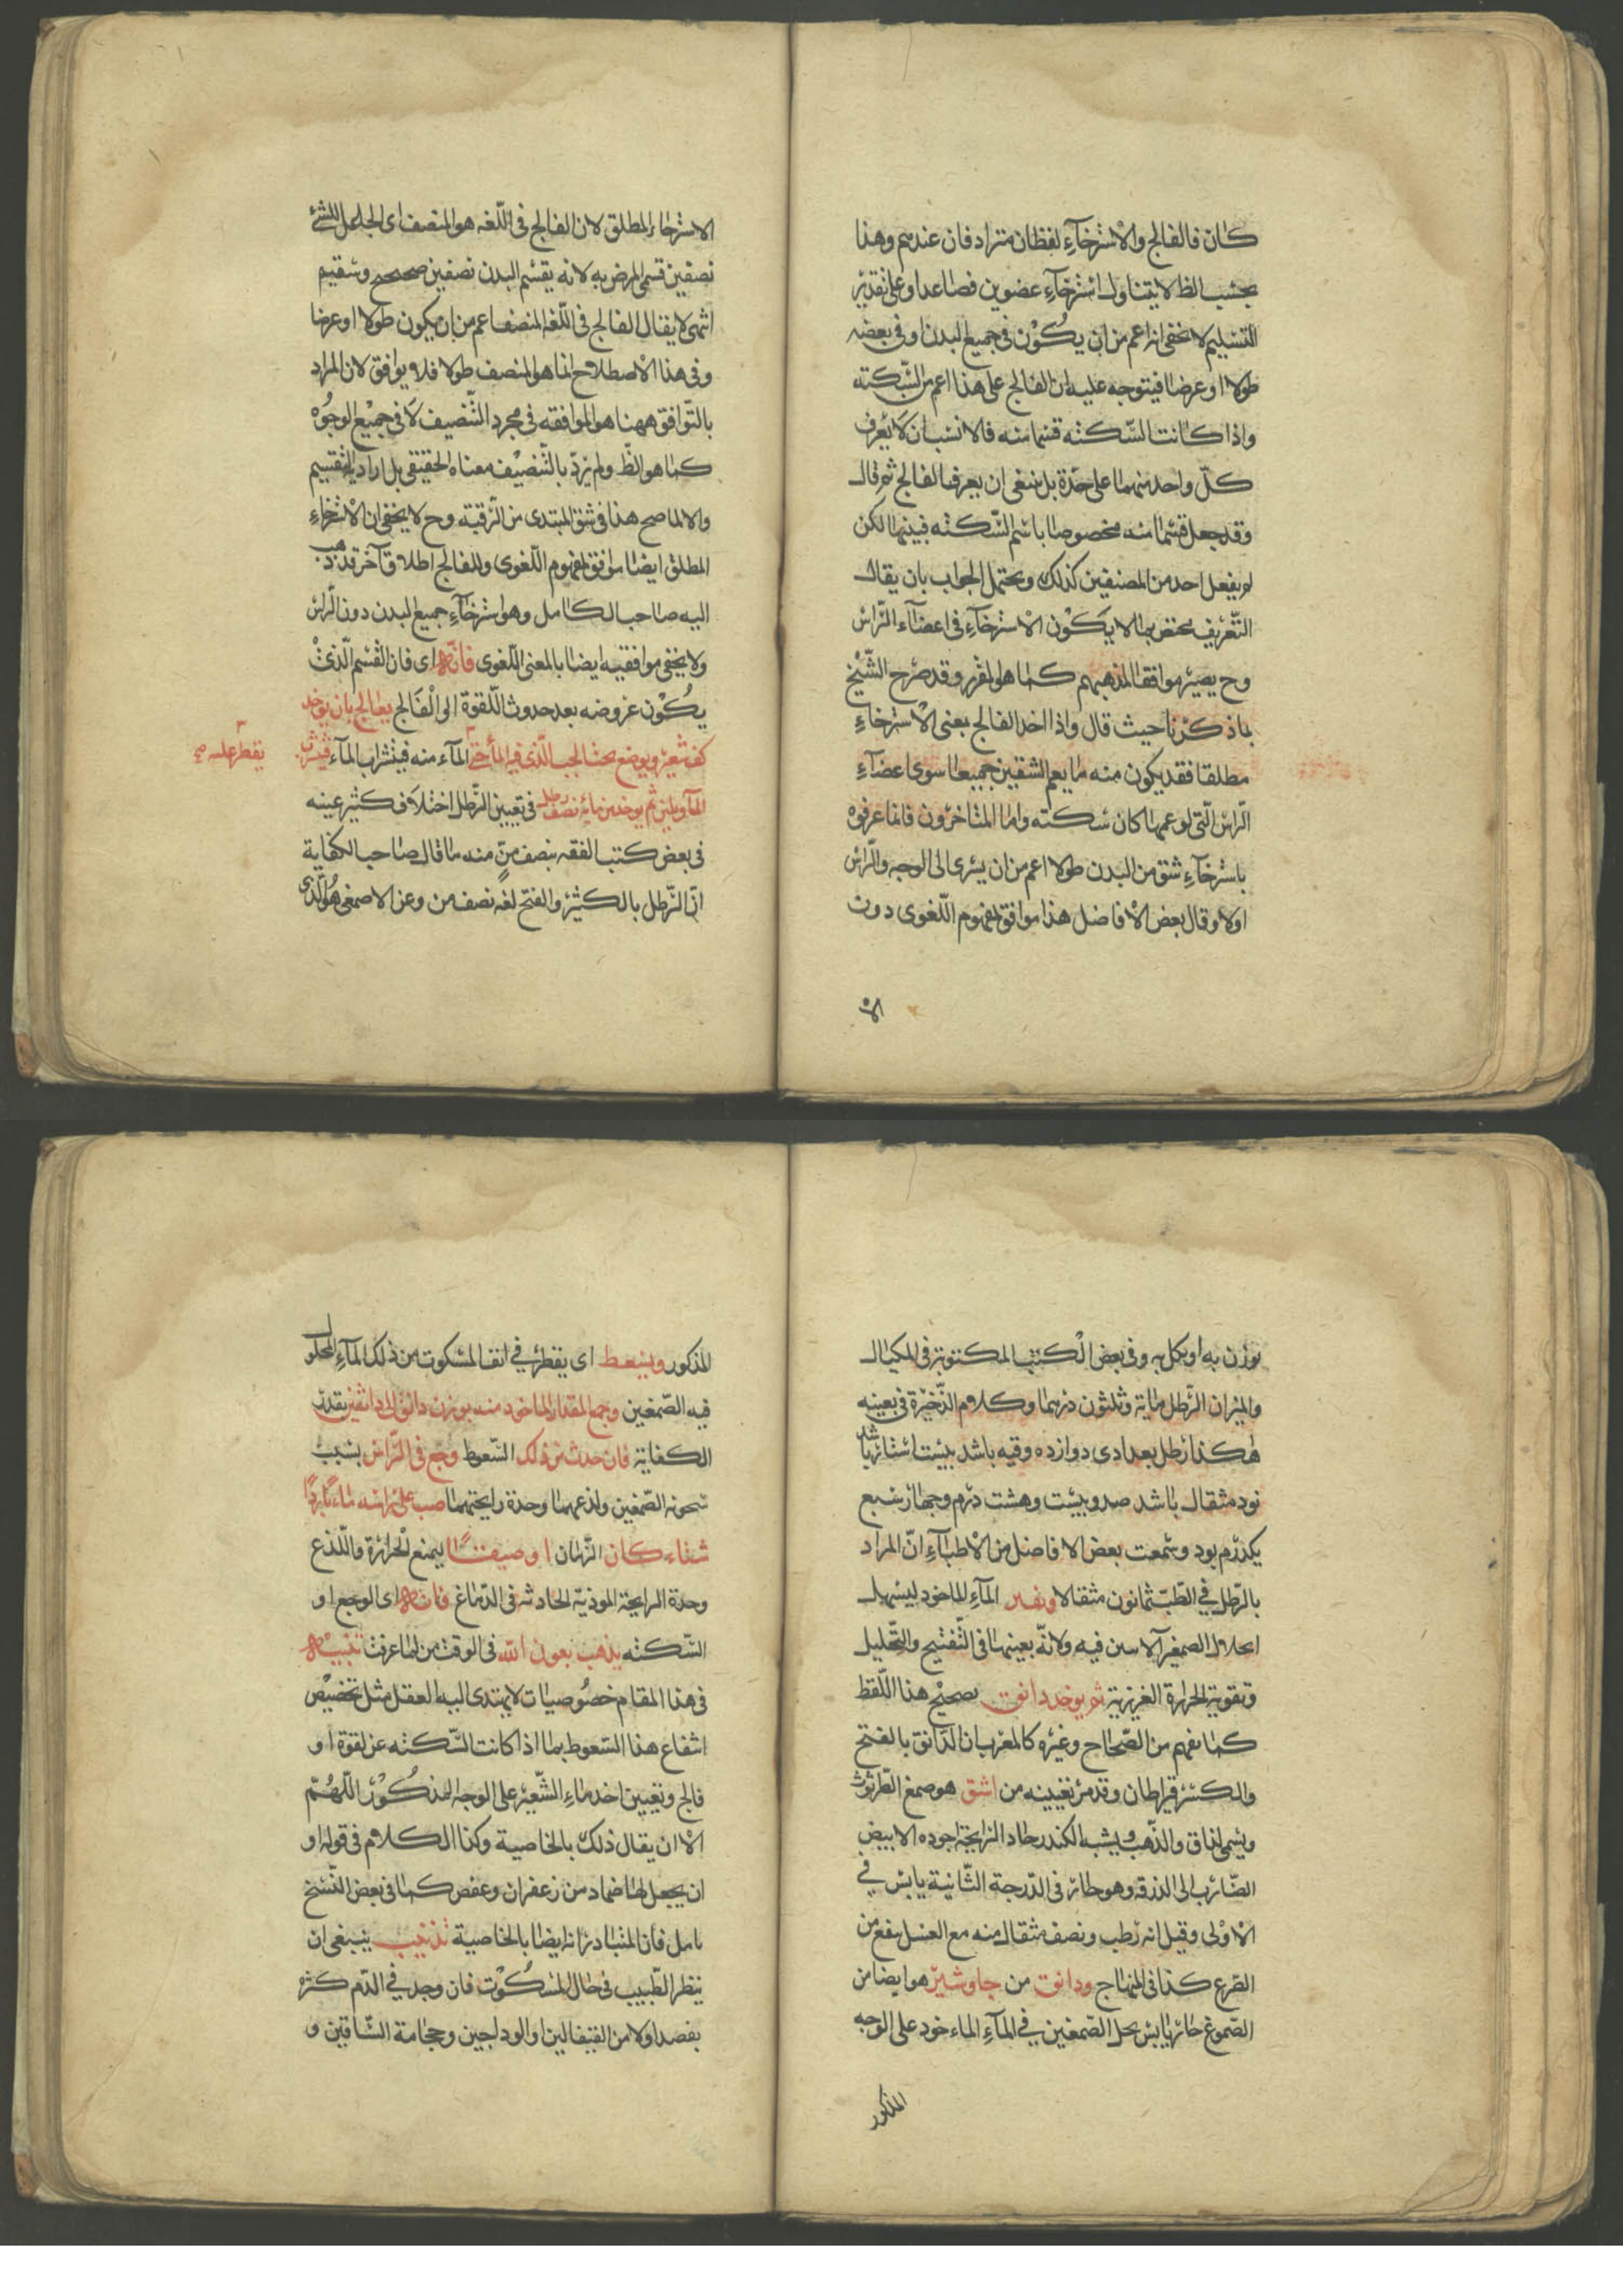 كان فالفالج والاسترخآءِ لفظان مترادفان عندهم وهذا
بحسب الظ لا يتناول استرخآءِ عضوين فصاعدا وعلى تقدير
التسليم لا يخفى انه اعم من ان يكون فى جميع البدن او فى بعضه
طولا او عرضا فيتوجه عليه ان الفالج على هذا اعم من السّكته
واذا كانت السّكته قسما منه فالانسب ان لا يعرف
كلّ واحد منهما على حدة بل ينبغى ان يعرف الفالج ثم قال
وقد جعل قسما منه مخصوصا باسم السّكته فبينهما لكن
لم يفعل احد من المصنفين كذلك ويحتمل الجواب بان يقال
التّعريف مختص بما لا يكون الاسترخآءِ فى اعضآء الرّاس
وح يصير موافقا لمذهبهم كما هو المقرر وقد صرّح الشّيخ
بما ذكرنا حيث قال واذا اخذ الفالج بمعنى الاسترخاءِ
مطلقا فقد يكون منه ما يعم الشقين جميعا سوى اعضآءِ
الرّاس الّتى لو عمها كان سكته واما المتاخرون فانما عرفوه
باسترخآءِ شق من البدن طولا اعم من ان يسرى الى الوجه والرّاس
اولا وقال بعض الافاضل هذا موافق لمفهوم اللّغوى دون
الا
الاسترخاء المطلق لان الفالج فى اللّغه هو المنصف اى الجاعل للشئ
نصفين فسمى المرض به لانه يقسم البدن نصفين صحيح وسقيم
انتهى لا يقال الفالج فى اللّغه المنصف اعم من ان يكون طولا او عرضا
وفى هذا الاصطلاح انما هو المنصف طولا فلا يوافق لان المراد
بالتّوافق ههنا هو الموافقه فى مجرد التّنصيف لا فى جميع الوجوه
كما هو الظّ ولم يردّ بالتّنصيف معناه الحقيقى بل اراد به التقسيم
والا لما صح هذا فى شق المبتدى من الرّقبة وح لا يخفى ان الاسترخاءِ
المطلق ايضا موافق لمفهوم اللّغوى وللفالج اطلاق آخر قد ذهب
اليه صاحب الكامل وهو استرخآءِ جميع البدن دون الرّاس
ولا يخفى موافقيه ايضا بالمعنى اللّغوى فانّه اى فان القسم الّذى
يكون عروضه بعد حدوث اللّقوة او الفالج يعالج بان يوخذ
كف شعير ويوضع تحت الحب الّذى فيه المآء حتى المآء منه فيشرب المآء فيشرب
يقطر عليه صح
المآء ويلين ثم يوخذ من مائه نصف رطل فى تعيين الرّطل اختلاف كثير عينه
فى بعض كتب الفقه بنصف منّ منه ما قال صاحب الكفاية
انّ الرّطل بالكسر والفتح لغه نصف من وعن الاصمعى هو الّذى
يوزن به او يكل به وفى بعض الكتب المكتوبة فى المكيال
والميزان الرّطل مائة وثلثون درهما وكلام الذّخيرة فى بعينه
هكذا رطل بعدادى دوازده وقيه باشد بيست استار باشد
نود مثقال باشد صد و بيست و هشت درم و جهار سبع
يكدرم بود وسمعت بعض الافاضل من الاطبآءِ انّ المراد
بالرّطل فى الطّبّ ثمانون مثقالا ويفتر المآءِ الماخود ليسهل
انحلال الصمغين الآسن فيه ولانّه يعينهما فى التّفتيح والتّحليل
وتقوية الحرارة الغريزية ثم يوخد دانق تصحيح هذا اللّفظ
كما نفهم من الصّحاح وغيره كالمغرب ان الدّانق بالفتح
والكسر قيراطان وقد مرّ تعيينه من اشق هو صمغ الطّرثوث
ويسمى لزاق الذّهب ويشبه الكندر حاد الرّايحة اجوده الابيض
الضّارب الى الذرقه وهو حار فى الدّرجة الثّانية يابس فى
الاولى وقيل انه رطب ونصف مثقال منه مع العسل ينفع من
الصّرع كذا فى المنهاج ودانق من جاوشير هو ايضا من
الصّموغ حار يابس يحل الصّمغين فى المآءِ الماءخود على الوجه
المذكور
المذكور ويسعط اى يقطر فى انف المسكوت من ذلك المآءِ المحلول
فيه الصّمغين وجمع المقدار الماخود منه بوزن دانق الى دانقين بقدر
الكفاية فان حدث من ذلك السّعوط وجع فى الرّاس بسبب
سخونه الصّمغين ولذعهما وحدة رايحتهما صب على راسه ماءً باردًا
شتاء كان الزّمان او صيفًا ليمنع الحرارة واللّذع
وحدة الرايحة الموذيّة الحادثه فى الدّماغ فانه اى الوجع او
السّكته يذهب بعون الله فى الوقت من لما عرفت تنبيه
فى هذا المقام خصوصيات لا يهتدى اليه العقل مثل تخصيص
انتفاع هذا السّعوط بما اذا كانت السّكته عن لقوة او
فالج وتعيين اخذ ماءِ الشّعير على الوجه المذكور اللّهمّ
الا ان يقال ذلك بالخاصية وكذا الكلام فى قوله او
ان يجعل لها ضماد من زعفران وعفص كما فى بعض النّسخ
تامل فان المتبادر انه ايضا بالخاصية تذنيب ينبغى ان
ينظر الطّبيب فى حال المسكوت فان وجد فى الدّم كثرة
يفصد اولا من القيفالين او الوداجين وحجامة السّاقين و